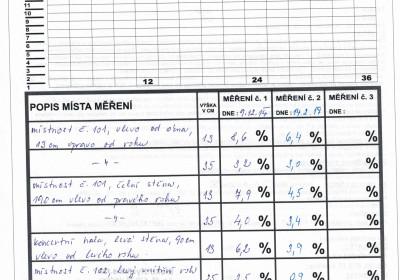 11
10
9
8
7
6
5
4
3
2
1
12 24 36
POPIS MÍSTA MĚŘENÍ VÝŠKA V CM MĚŘENÍ č. 1 MĚŘENÍ č. 2 MĚŘENÍ č. 3
DNE: DNE: DNE:
místnost č. 101, vlevo od okna, 13 8,6 % 6,4 % %
13 cm vpravo od rohu
— 4 — 35 3,2 % 3,0 % %
místnost č. 101, čelní stěna, 13 7,9 % 4,5 % %
190 cm vlevo od pravého rohu
35 4,0 % 3,4 % %
koncertní hala, levá stěna, 90 cm 13 6,2 % 3,9 % %
vlevo od levého rohu
místnost č. 102, levý vnitřní roh 35 3,5 % 0,9 % %